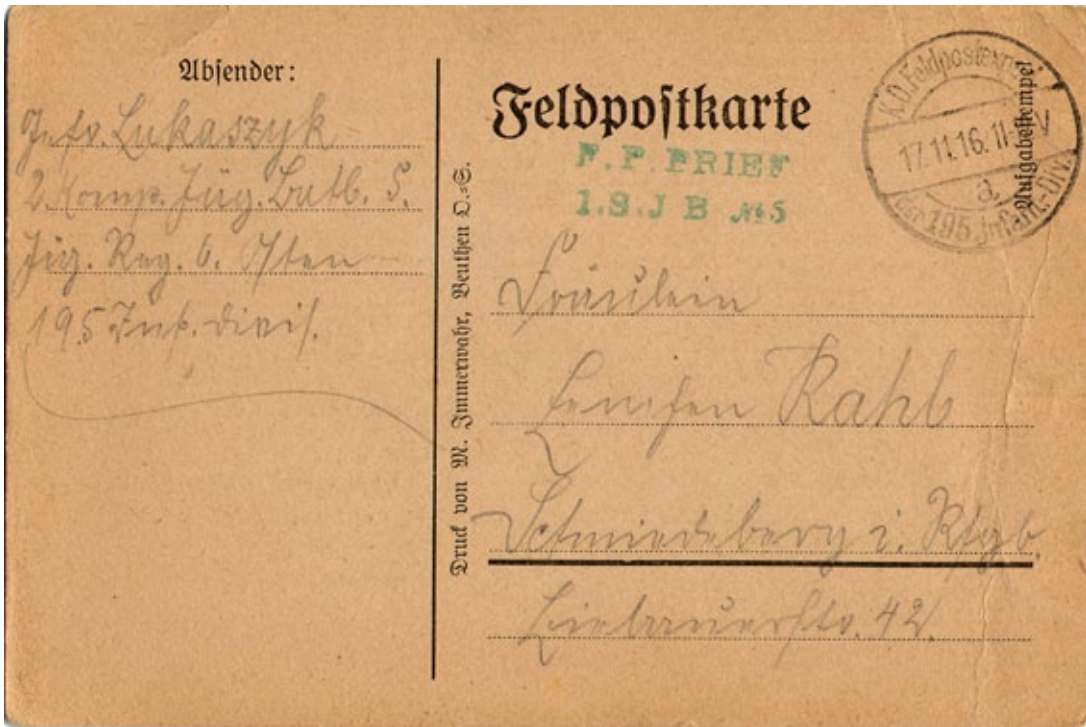 Absender:
Gefr. Lukaszyk
2. Comp. Jäg. Batl. 5.
Jäg. Reg. 6. Osten
195 Inf. Divis.
Druck von M. Immerwahr, Beuthen O.=S.
Feldpostkarte
F.P. BRIEF
1.S.J B №5
K.D. Feldpostexp.
17.11.16. 11-
V
a.
der 195. Infant.-Div.
Aufgabestempel
Fräulein
Rahb
Schmiedeberg i. Rsgb.
Liebauerstr. 42.